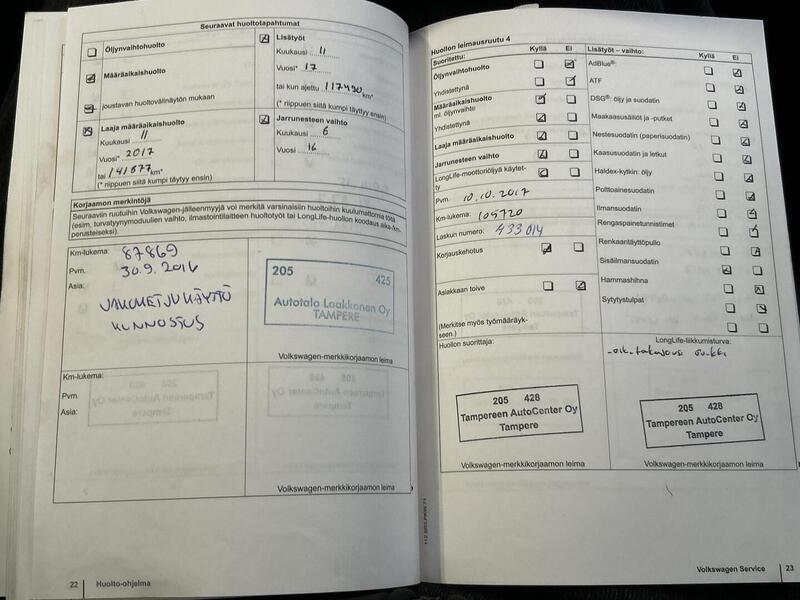 Seuraavat huoltotapahtumat
Öljynvaihtohuolto
Määräaikaishuolto
joustavan huoltovälinäytön mukaan
Laaja määräaikaishuolto
Kuukausi 11
Vuosi* 2017
tai 141677 km*
(* riippuen siitä kumpi täytyy ensin)
Lisätyöt
Kuukausi 11
Vuosi* 17
tai kun ajettu 117490 km*
(* riippuen siitä kumpi täytyy ensin)
Jarrunesteen vaihto
Kuukausi 6
Vuosi 16
Korjaamon merkintöjä
Seuraaviin ruutuihin Volkswagen-jälleenmyyjä voi merkitä varsinaisiin huoltoihin kuulumattomia töitä
(esim, turvatyynymoduulien vaihto, ilmastointilaitteen huoltotyöt tai LongLife-huollon koodaus aika-/km-
perusteiseksi).
Km-lukema: 87869
Pvm. 30.9.2016
Asia:
VAKOKETJUKÄYTTÖ
KUNNOSTUS
205 425
Autotalo Laakkonen Oy
TAMPERE
Volkswagen-merkkikorjaamon leima
Km-lukema:
Pvm.
Asia:
Volkswagen-merkkikorjaamon leima
22 Huolto-ohjelma
Huollon leimausruutu 4
Suoritettu: Kyllä Ei
Öljynvaihtohuolto
Yhdistettynä
Määräaikaishuolto
ml. öljynvaihto
Yhdistettynä
Laaja määräaikaishuolto
Jarrunesteen vaihto
LongLife-moottoriöljyä käytet-
ty
Pvm. 10.10.2017
Km-lukema: 109720
Laskun numero: 433014
Korjauskehotus
Asiakkaan toive
(Merkitse myös työmääräyk-
seen.)
Lisätyöt – vaihto: Kyllä Ei
AdBlue®:
ATF
DSG®: öljy ja suodatin
Maakaasusäiliöt ja -putket
Nestesuodatin (paperisuodatin)
Kaasusuodatin ja letkut
Haldex-kytkin: öljy
Polttoainesuodatin
Ilmansuodatin
Rengaspainetunnistimet
Renkaantäyttöpullo
Sisäilmansuodatin
Hammashihna
Sytytystulpat
Huollon suorittaja:
205 428
Tampereen AutoCenter Oy
Tampere
Volkswagen-merkkikorjaamon leima
LongLife-liikkumisturva:
205 428
Tampereen AutoCenter Oy
Tampere
Volkswagen-merkkikorjaamon leima
Volkswagen Service 23